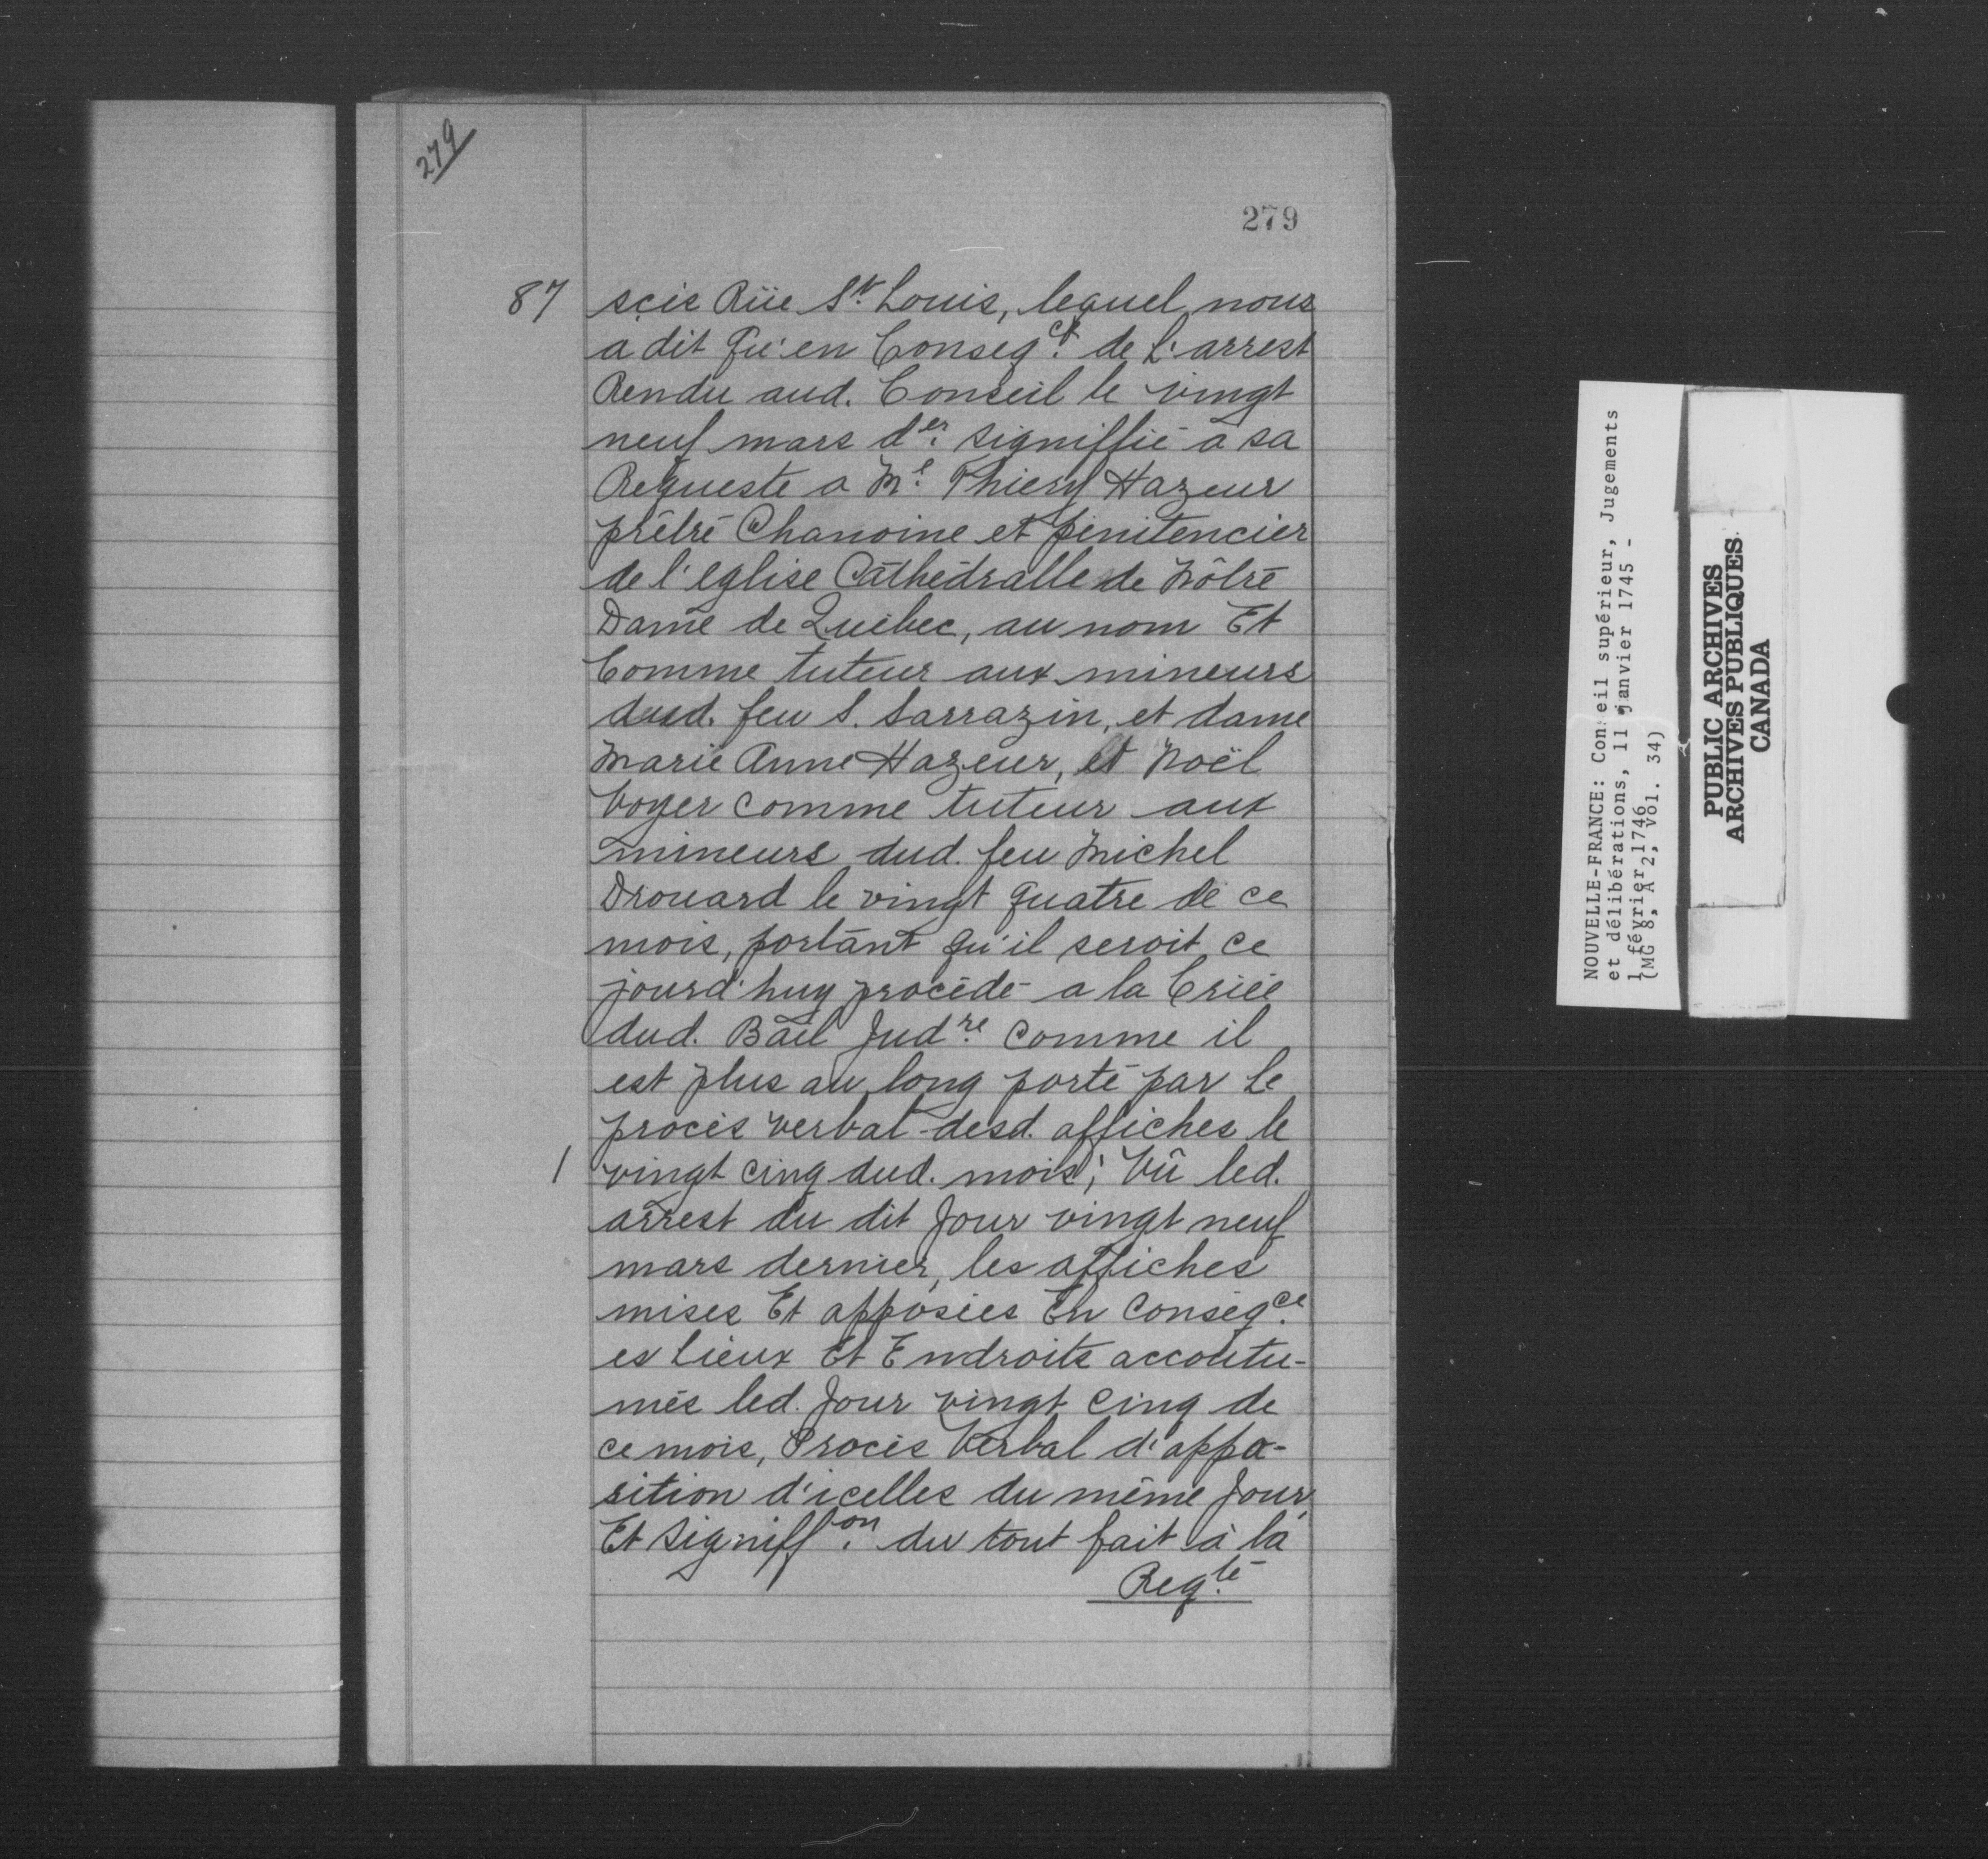 279
279
87 sçis Rüe St. Louis, lequel nous
a dit qu'en Conseqce. de L'arrest
Rendu aud. Conseil le vingt
neuf mars der. signiffié a sa
Requeste a Me. Thiery Hazeur
prêtre Chanoine et penitencier
de l'eglise Cathédralle de Nôtre
Dame de Québec, au nom Et
Comme tuteur aux mineurs
dud. feu S. Sarrazin, et dame
Marie Anne Hazeur, et Noël
Voyer comme tuteur aux
mineurs dud. feu Michel
Drouard le vingt quatre de ce
mois, portant qu'il seroit ce
jourd'huy procédé a la Criée
dud. Bail Judre. comme il
est plus au long porté par Le
procès verbal desd. affiches le
/ vingt cinq dud. mois; Vû led.
arrest du dit Jour vingt neuf
mars dernier, les affiches
mises Et apposées En Conséqce.
es Lieux Et Endroits accoutu-
més led. Jour vingt cinq de
ce mois, Procès Verbal d'appo-
sition d'icelles du même Jour,
Et signiffon. du tout fait à la
Reqte.
NOUVELLE-FRANCE: Conseil supérieur, Jugements
et délibérations, 11 janvier 1745 -
1 février 1746
(MG 8, A 2, vol. 34)
PUBLIC ARCHIVES
ARCHIVES PUBLIQUES
CANADA